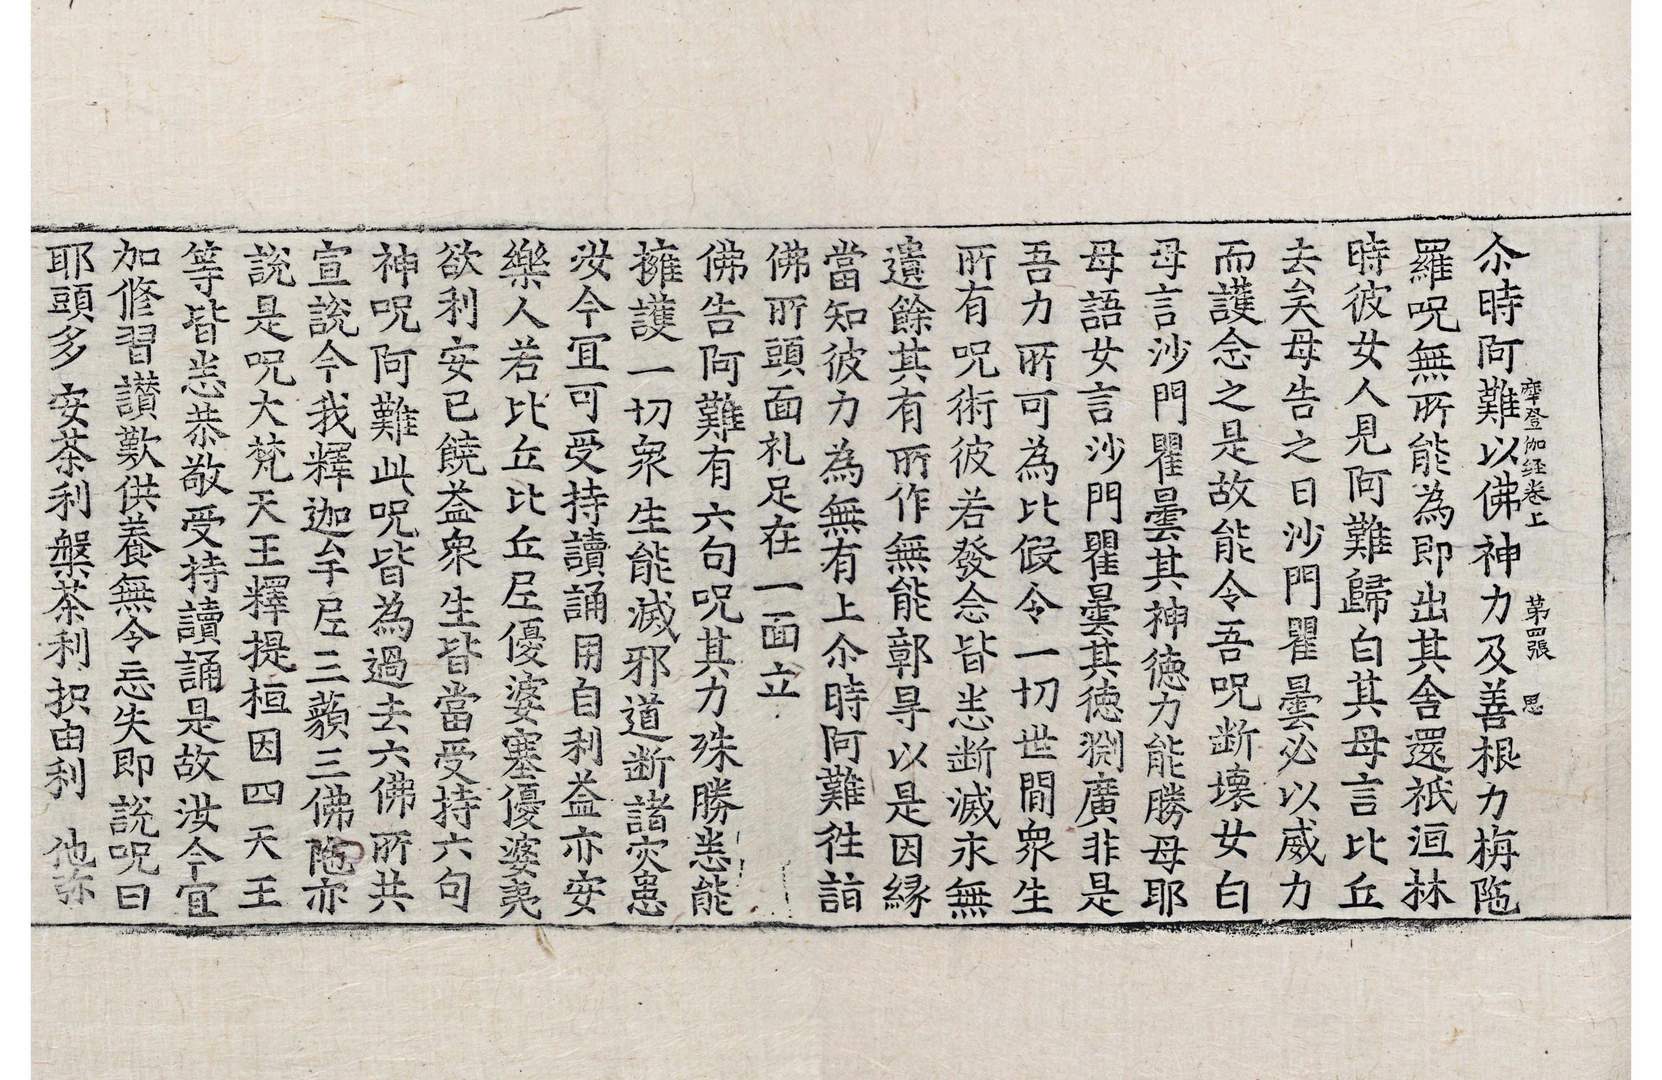 摩登伽経卷上 第四張 思
尒時阿難以佛神力及善根力栴陁
羅呪無所能為即出其舍還祇洹林
時彼女人見阿難歸白其母言比丘
去矣母告之曰沙門瞿曇必以威力
而護念之是故能令吾呪断壊女白
母言沙門瞿曇其神徳力能勝母耶
母語女言沙門瞿曇其徳渊廣非是
吾力所可為比假令一切世間衆生
所有呪術彼若發念皆悉断滅永無
遺餘其有所作無能鄣㝵以是因縁
當知彼力為無有上尒時阿難徃詣
佛所頭面礼足在一面立
佛告阿難有六句呪其力殊勝悉能
擁護一切衆生能滅邪道断諸灾患
汝今冝可受持讀誦用自利益亦安
樂人若比丘比丘尼優婆塞優婆夷
欲利安已饒益衆生皆當受持六句
神呪阿難此呪皆為過去六佛所共
宣說今我釋迦牟尼三藐三佛陁亦
說是呪大梵天王釋提桓因四天王
等皆悉恭敬受持讀誦是故汝今冝
加修習讃歎供養無令忘失即說呪曰
耶頭多 安荼利 槃荼利 抧由利 他弥